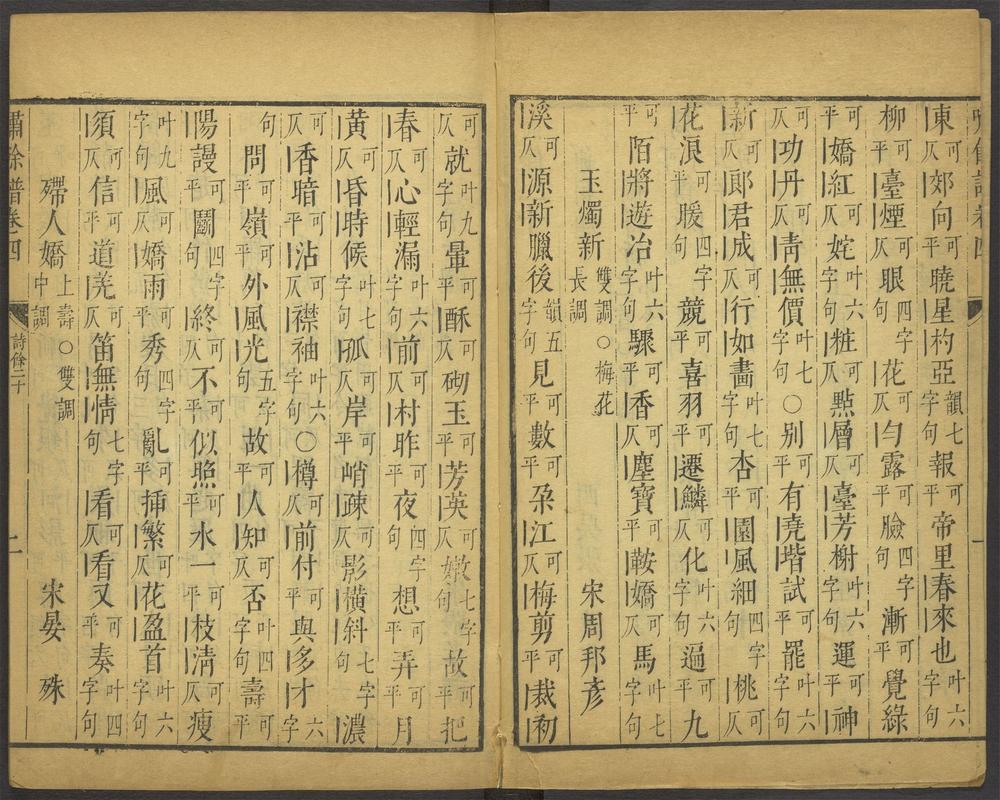 東可仄郊向可平曉星杓亞韻七字報可平帝里春來也叶六字句
柳可平臺煙可仄眼四字句花可仄勻露可平臉四字句漸可平覺綠
可平嬌紅可仄姹叶六字句粧可仄點層可仄臺芳榭叶六字句運可平神
可仄功丹可仄靑無價叶七字句○別可平有堯堦試可平罷叶六字句
新可仄郎君成可仄行如畵叶七字句杏可平園風細四字句桃可仄
花浪可平暖四字句競可平喜羽可平遷鱗可仄化叶六字句遍可平九
可平陌將遊冶叶六字句驟可平香可仄塵寶可平鞍嬌可仄馬叶七字句
玉燭新雙調○梅花長調 宋周邦彦
溪可仄源新臘後韻五字句見可平數可平朶江可仄梅剪可平裁初
可仄就叶九字句暈可平酥可仄砌玉可平芳英可仄嫩七字句故可平把
春可仄心輕漏叶六字句前可仄村昨可平夜四字句想可平弄可平月
黄可仄昏時候叶七字句孤可仄岸可平峭疎可仄影橫斜七字句濃
可仄香暗可平沾可仄襟袖叶六字句○樽可仄前付可平與多才六字
句問可平嶺可平外風光五字句故可平人知可仄否叶四字句壽可平
陽謾可平鬭四字句終可仄不可平似照可平水一可平枝清可仄瘦
叶九字句風可仄嬌雨可平秀四字句亂可平揷繁可仄花盈首叶六字句
須可仄信可平道羌可仄笛無情七字句看可仄看又可平奏叶四字句
殢人嬌上壽○雙調中調 宋晏 殊
嘯餘譜卷四 詩餘二十 二